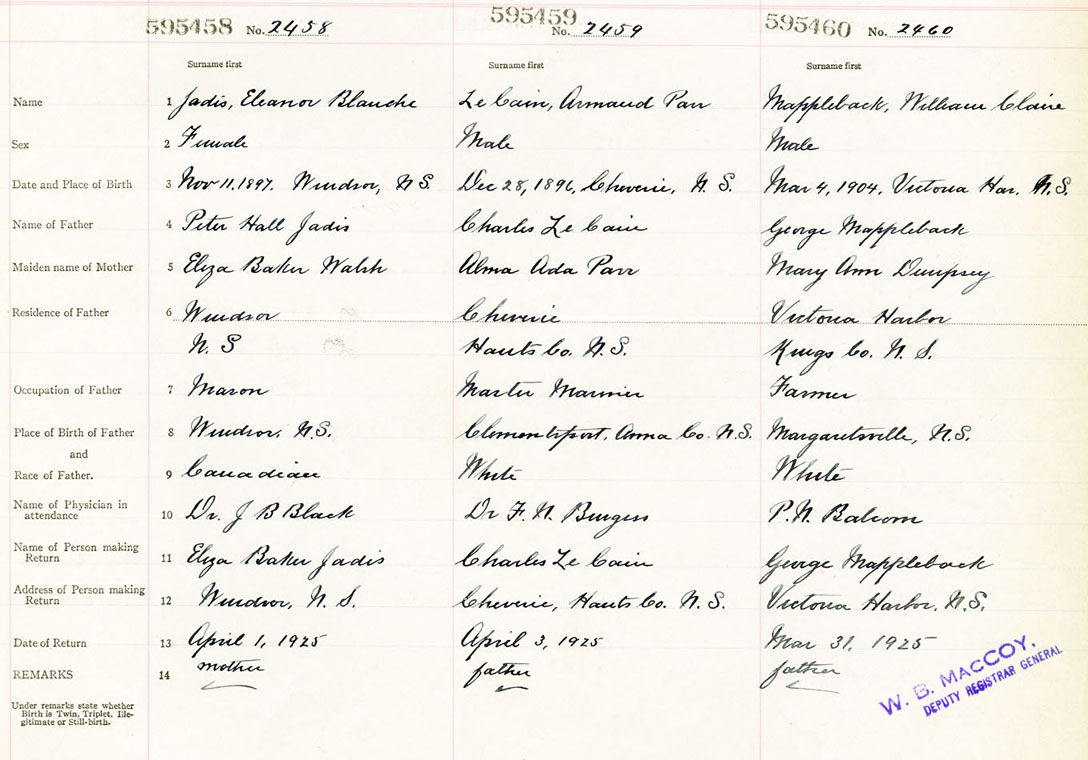 595458 No. 2458 595459 No. 2459 595460 No. 2460
Surname first Surname first Surname first
Name 1 Jadis, Eleanor Blanche Le Cain, Armaud Parr Mappleback, William Claire
Sex 2 Female Male Male
Date and Place of Birth 3 Nov 11, 1897. Windsor, N S. Dec 28, 1896, Cheverie, N. S. Mar 4, 1904, Victoria Har. N.S.
Name of Father 4 Peter Hall Jadis Charles Le Cain George Mappleback
Maiden name of Mother 5 Eliza Baker Walsh Alma Ada Parr Mary Ann Dempsey
Residence of Father 6 Windsor Cheverie Victoria Harbor
N. S Hants Co. N.S. Kings Co. N. S.
Occupation of Father 7 Mason Master Mariner Farmer
Place of Birth of Father 8 Windsor, N.S. Clementsport, Anna Co. N.S. Margaretsville, N.S.
and
Race of Father. 9 Canadian White White
Name of Physician in
attendance 10 Dr. J B Black Dr F. N. Burgess P. N. Balcom
Name of Person making
Return 11 Eliza Baker Jadis Charles Le Cain George Mappleback
Address of Person making
Return 12 Windsor, N. S. Cheverie, Hants Co. N.S. Victoria Harbor, N.S.
Date of Return 13 April 1, 1925 April 3, 1925 Mar 31, 1925
REMARKS 14 mother father father
W. B. MACCOY,
DEPUTY REGISTRAR GENERAL
Under remarks state whether
Birth is Twin, Triplet, Ille-
gitimate or Still-birth.